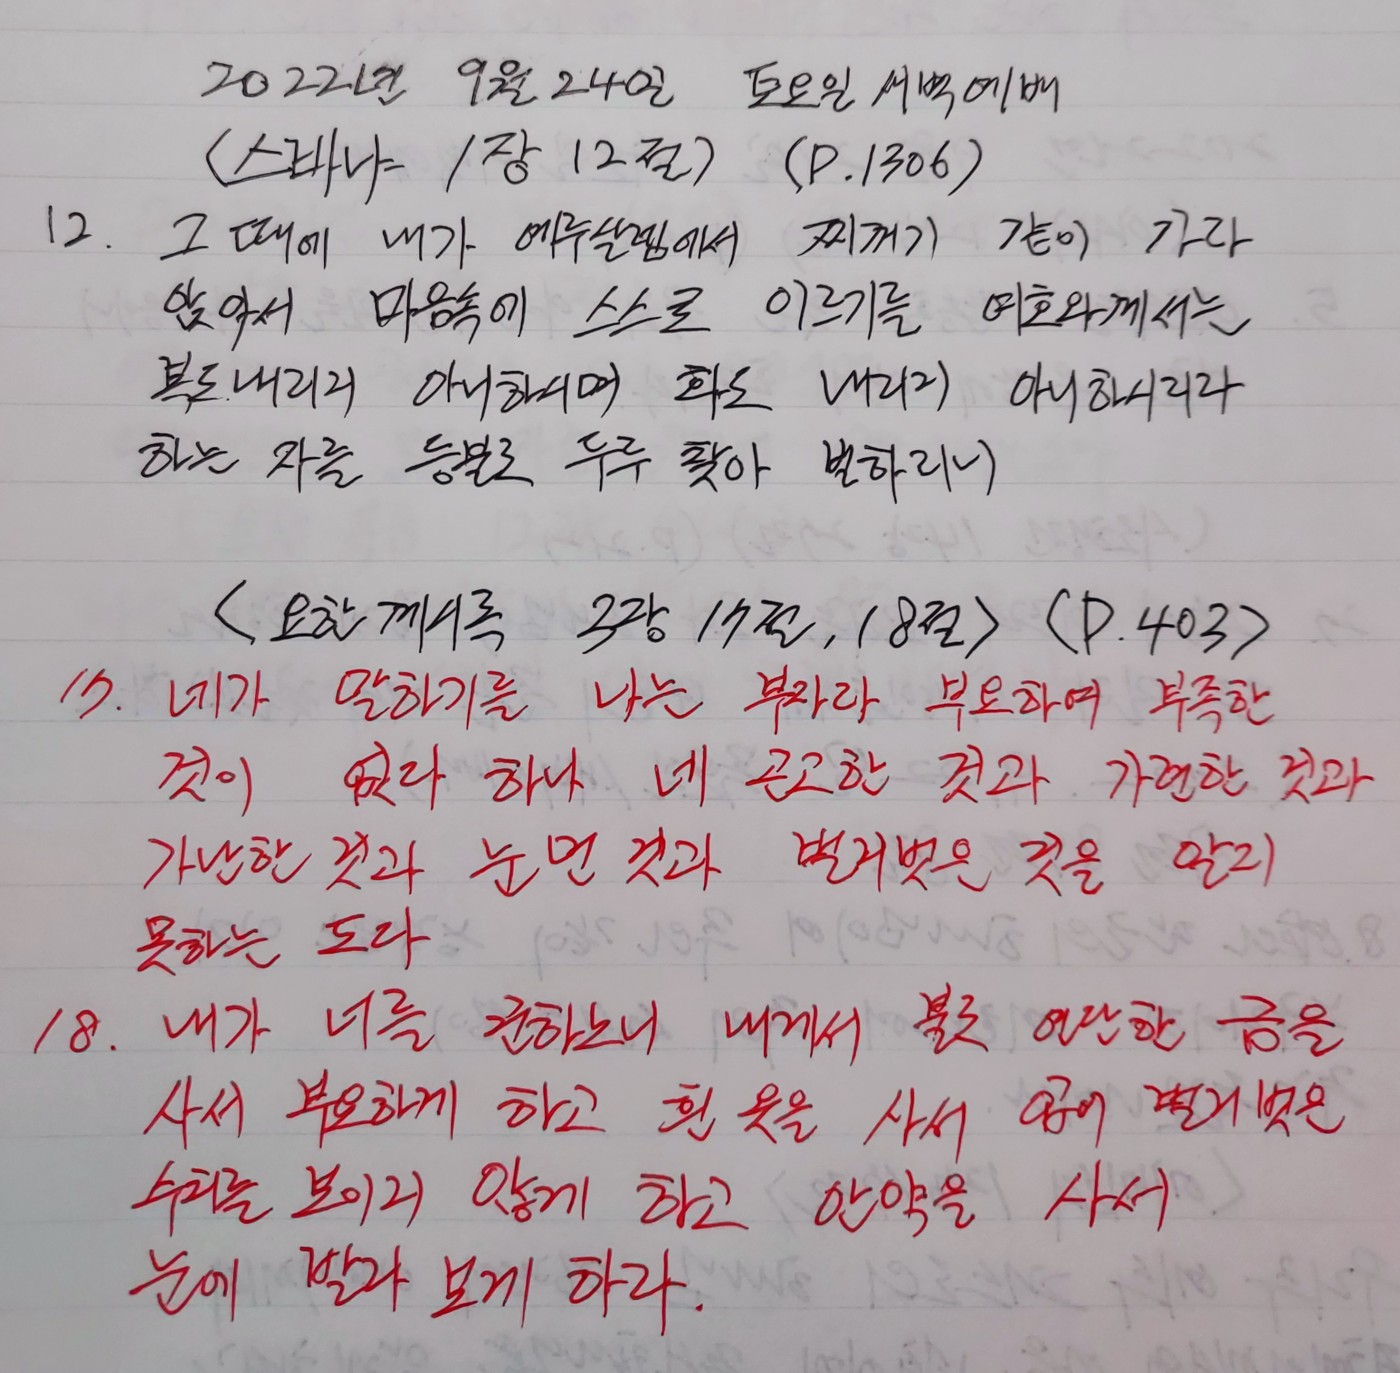 2022년 9월 24일 토요일 새벽예배
<스바냐 1장 12절> (P.1306)
12. 그 때에 내가 예루살렘에서 찌꺼기 같이 가라
앉아서 마음속에 스스로 이르기를 여호와께서는
복도 내리지 아니하시며 화도 내리지 아니하시리라
하는 자를 등불로 두루 찾아 벌하리니
<요한계시록 3장 17절, 18절> (P.403)
17. 네가 말하기를 나는 부자라 부요하여 부족한
것이 없다 하나 네 곤고한 것과 가련한 것과
가난한 것과 눈 먼 것과 벌거벗은 것을 알지
못하는 도다
18. 내가 너를 권하노니 내게서 불로 연단한 금을
사서 부요하게 하고 흰 옷을 사서 입어 벌거벗은
수치를 보이지 않게 하고 안약을 사서
눈에 발라 보게 하라.